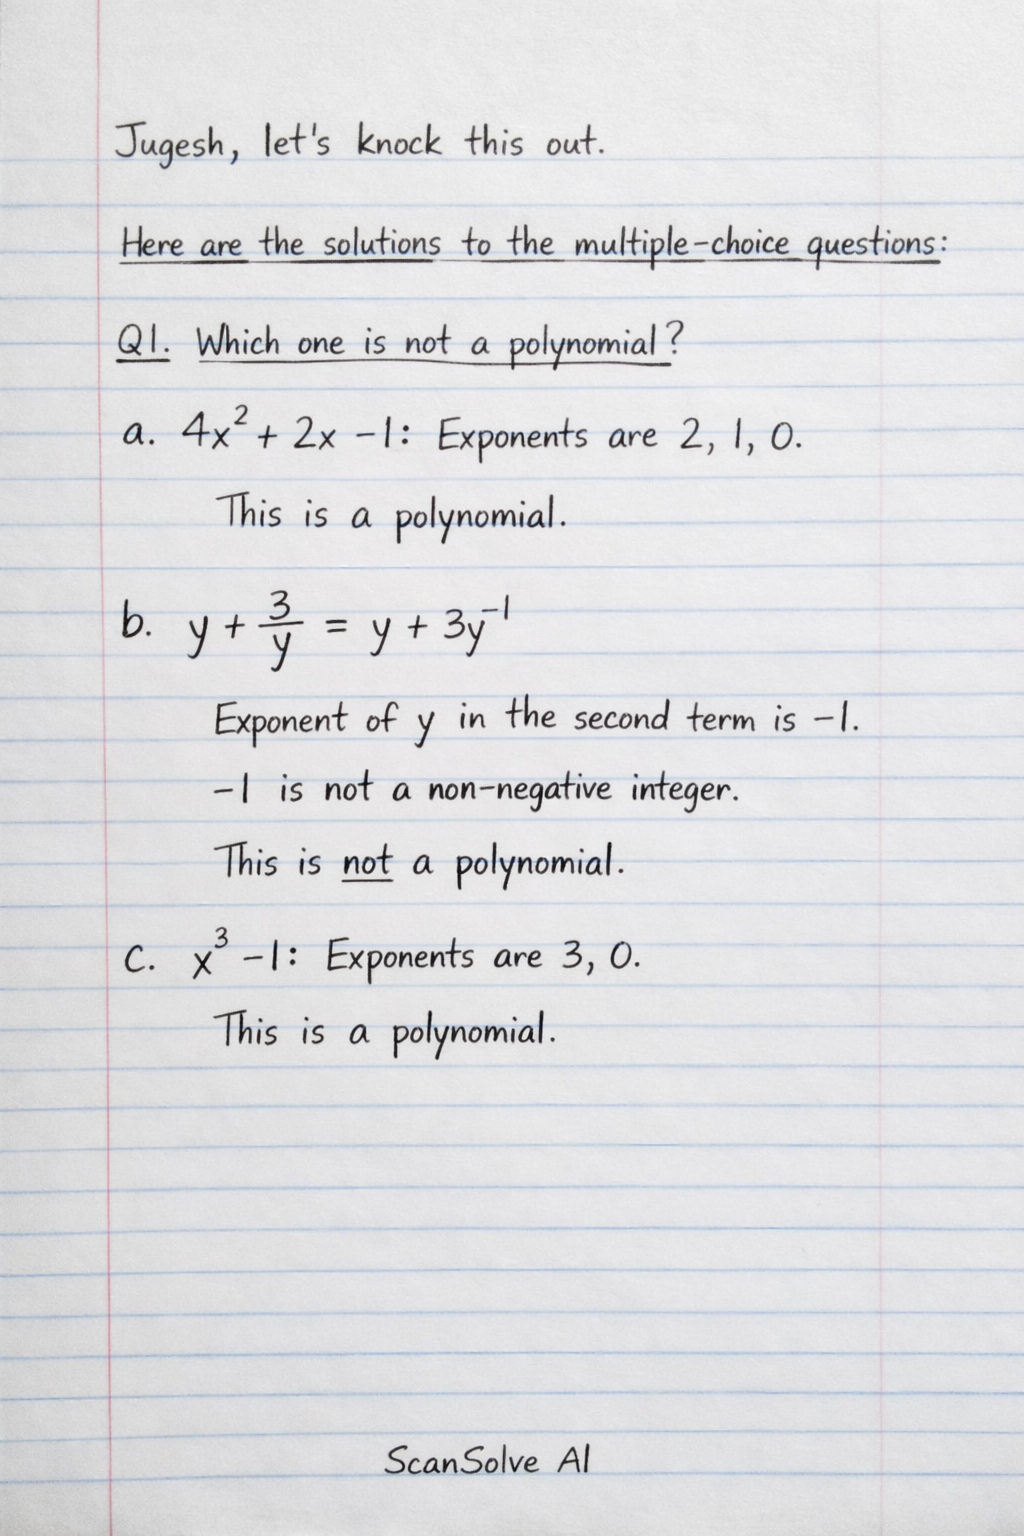 Jugesh, let's knock this out.
Here are the solutions to the multiple-choice questions:
Q1. Which one is not a polynomial?
a. 4x² + 2x - 1: Exponents are 2, 1, 0.
This is a polynomial.
b. y + 3/y = y + 3y⁻¹
Exponent of y in the second term is -1.
-1 is not a non-negative integer.
This is not a polynomial.
c. x³ - 1: Exponents are 3, 0.
This is a polynomial.
ScanSolve AI